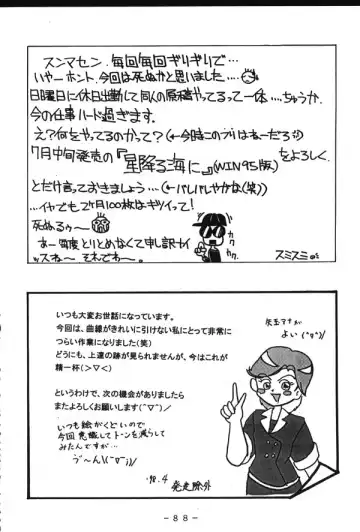 スンマセン、毎回毎回ギリギリで…
いやーホント、今回は死ぬかと思いました…
日曜日に休日出勤して同人の原稿やってるって一体…ちゅうか、
今の仕事ハード過ぎます。
え?何をやってるのかって?(←今時このフリはねーだろ)
7月中旬発売の『星降る海に』(WIN95版)をよろしく
とだけ言っておきましょう…(←バレバレやがな(笑))
…イヤでもで1ヶ月100枚はキツイって!
死ぬるぅ~
あー毎度とりとめなくて申し訳ナイ
ッスね~ それでわ~。
カク
カク
スミスミ
いつも大変お世話になっています。
今回は、曲線がきれいに引けない私にとって非常に
つらい作業になりました(笑)
どうにも、上達の跡が見られませんが、今はこれが
精一杯(>▽<)
というわけで、次の機会がありましたら
またよろしくお願いします(⌒▽⌒)/
いつも絵がくどいので
今回意識してトーンを減らして
みたんですが…
う゛~ん\(ーーi)/
'98.4 発定除外
矢玉アナが
よい(^▽^)/
-88-